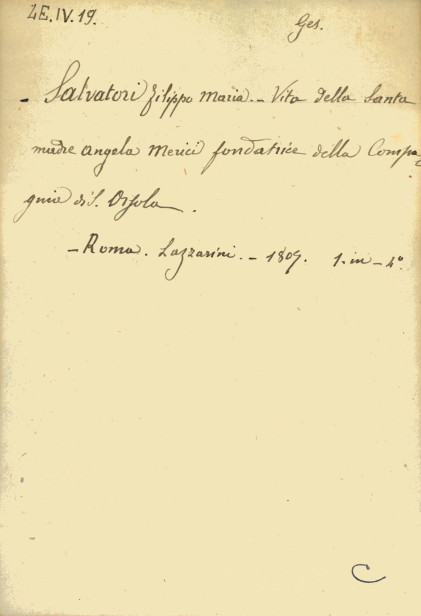 4E.IV.19.
Ges.
- Salvatori Filippo Maria. - Vita della Santa
madre Angela Merici fondatrice della Compa-
gnia di S. Orsola.
- Roma. Lazzarini. - 1807. 1. in - 4°
C